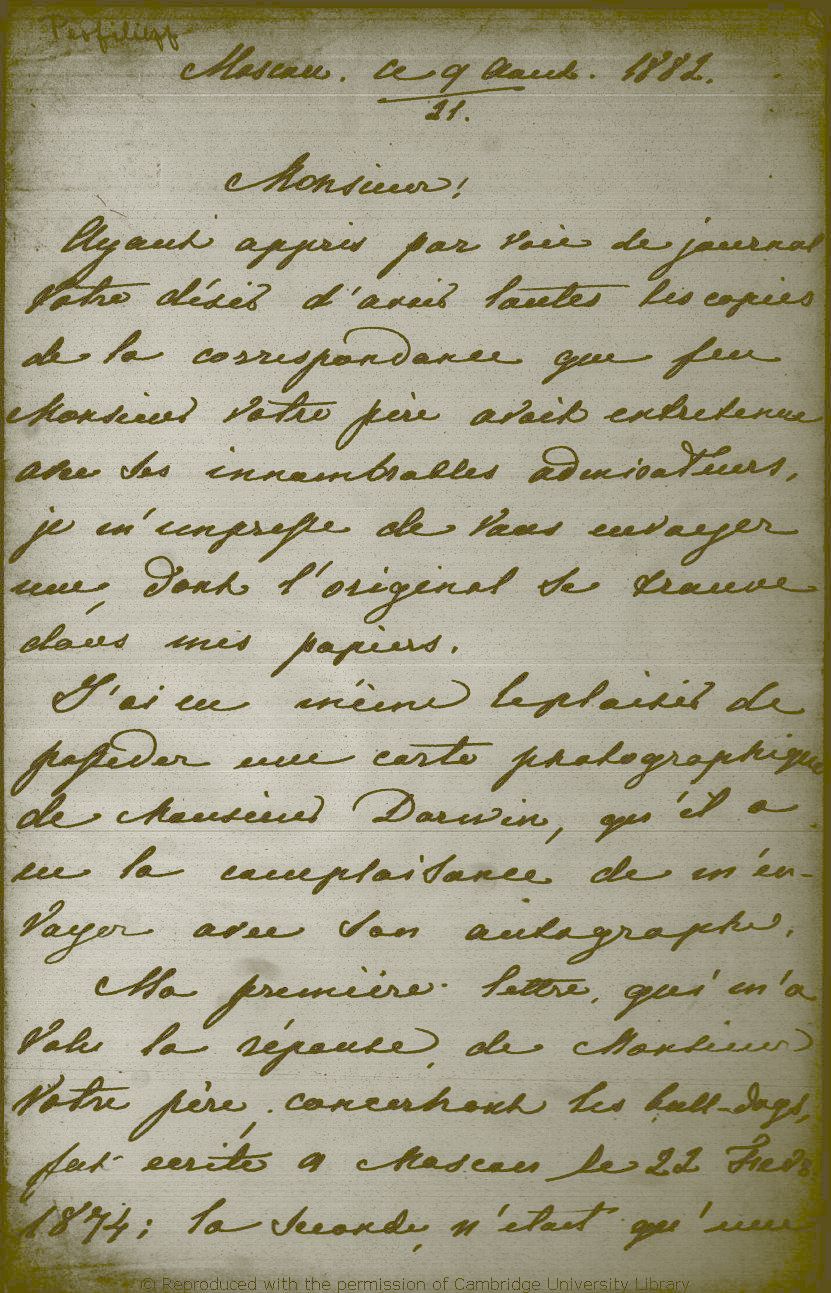 Perfilieff
Moscou. ce 9 Aout. 1882.
21.
Monsieur!
Ayant appris par voie de journal
Votre désir d'avoir toutes les copies
de la correspondance que feu
Monsieur Votre père avait entretenue
avec ses innombrables admirateurs,
je m'empresse de Vous envoyer
une, dont l'original se trouve
dans mes papiers.
J'ai eu même le plaisir de
posséder une carte photographique
de Monsieur Darwin, qu'il a
eu la complaisance de m'en-
voyer avec son autographe.
Ma première lettre, qui m'a
Valu la réponse de Monsieur
Votre père, concernant les bull-dogs,
fut ecrite a Moscou le 22 Fevr
1874; la seconde n'était qu'une
© Reproduced with the permission of Cambridge University Library